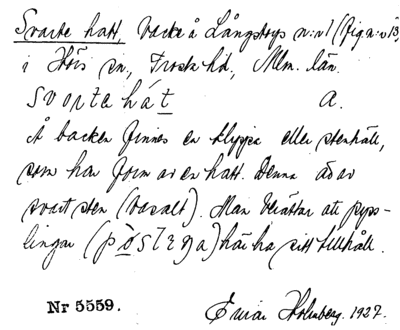 Svarte hatt, backe å Långstorps n:r 1 (fig. n:r 13)
i Hörs sn, Frosta hd, Mlm. län.
svortahát A.
Å backen finnes en klippa eller stenhäll,
som har form av en hatt. Denna är av
svart sten (basalt). Man berättar att pyss-
lingar (pøslıŋa) här ha sitt tillhåll.
Nr 5559. Einar Holmberg. 1927.